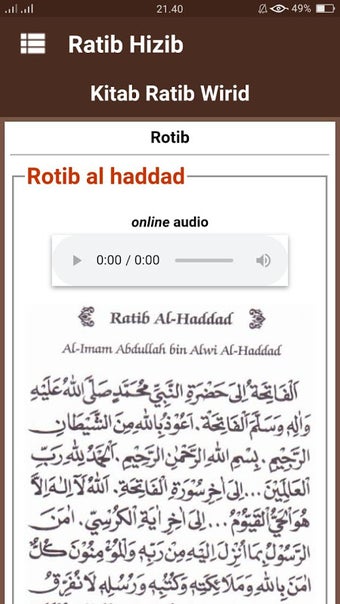 21.40
49%
Ratib Hizib
Kitab Ratib Wirid
Rotib
Rotib al haddad
online audio
0:00 / 0:00
Ratib Al-Haddad
Al-Imam Abdullah bin Alwi Al-Haddad
اَلْفَاتِحَةُ اِلَى حَضْرَةِ النَّبِيِّ مُحَمَّدٍ صَلَّى اللهُ عَلَيْهِ
وَاٰلِهِ وَسَلَّمَ اَلْفَاتِحَةْ. اَعُوْذُ بِاللهِ مِنَ الشَّيْطَانِ
الرَّجِيْمِ. بِسْمِ اللهِ الرَّحْمٰنِ الرَّحِيْمِ. اَلْحَمْدُ لِلهِ رَبِّ
الْعَالَمِيْنَ ... اِلَى اٰخِرِ سُوْرَةِ الْفَاتِحَةِ. اَللهُ لَا اِلٰهَ اِلَّا
هُوَ الْحَيُّ الْقَيُّوْمُ ... اِلَى اٰخِرِ اٰيَةِ الْكُرْسِيِّ. اٰمَنَ
الرَّسُوْلُ بِمَا اُنْزِلَ اِلَيْهِ مِنْ رَبِّهِ وَالْمُؤْمِنُوْنَ كُلٌّ
اٰمَنَ بِاللهِ وَمَلَائِكَتِهِ وَكُتُبِهِ وَرُسُلِهِ لَا نُفَرِّقُ